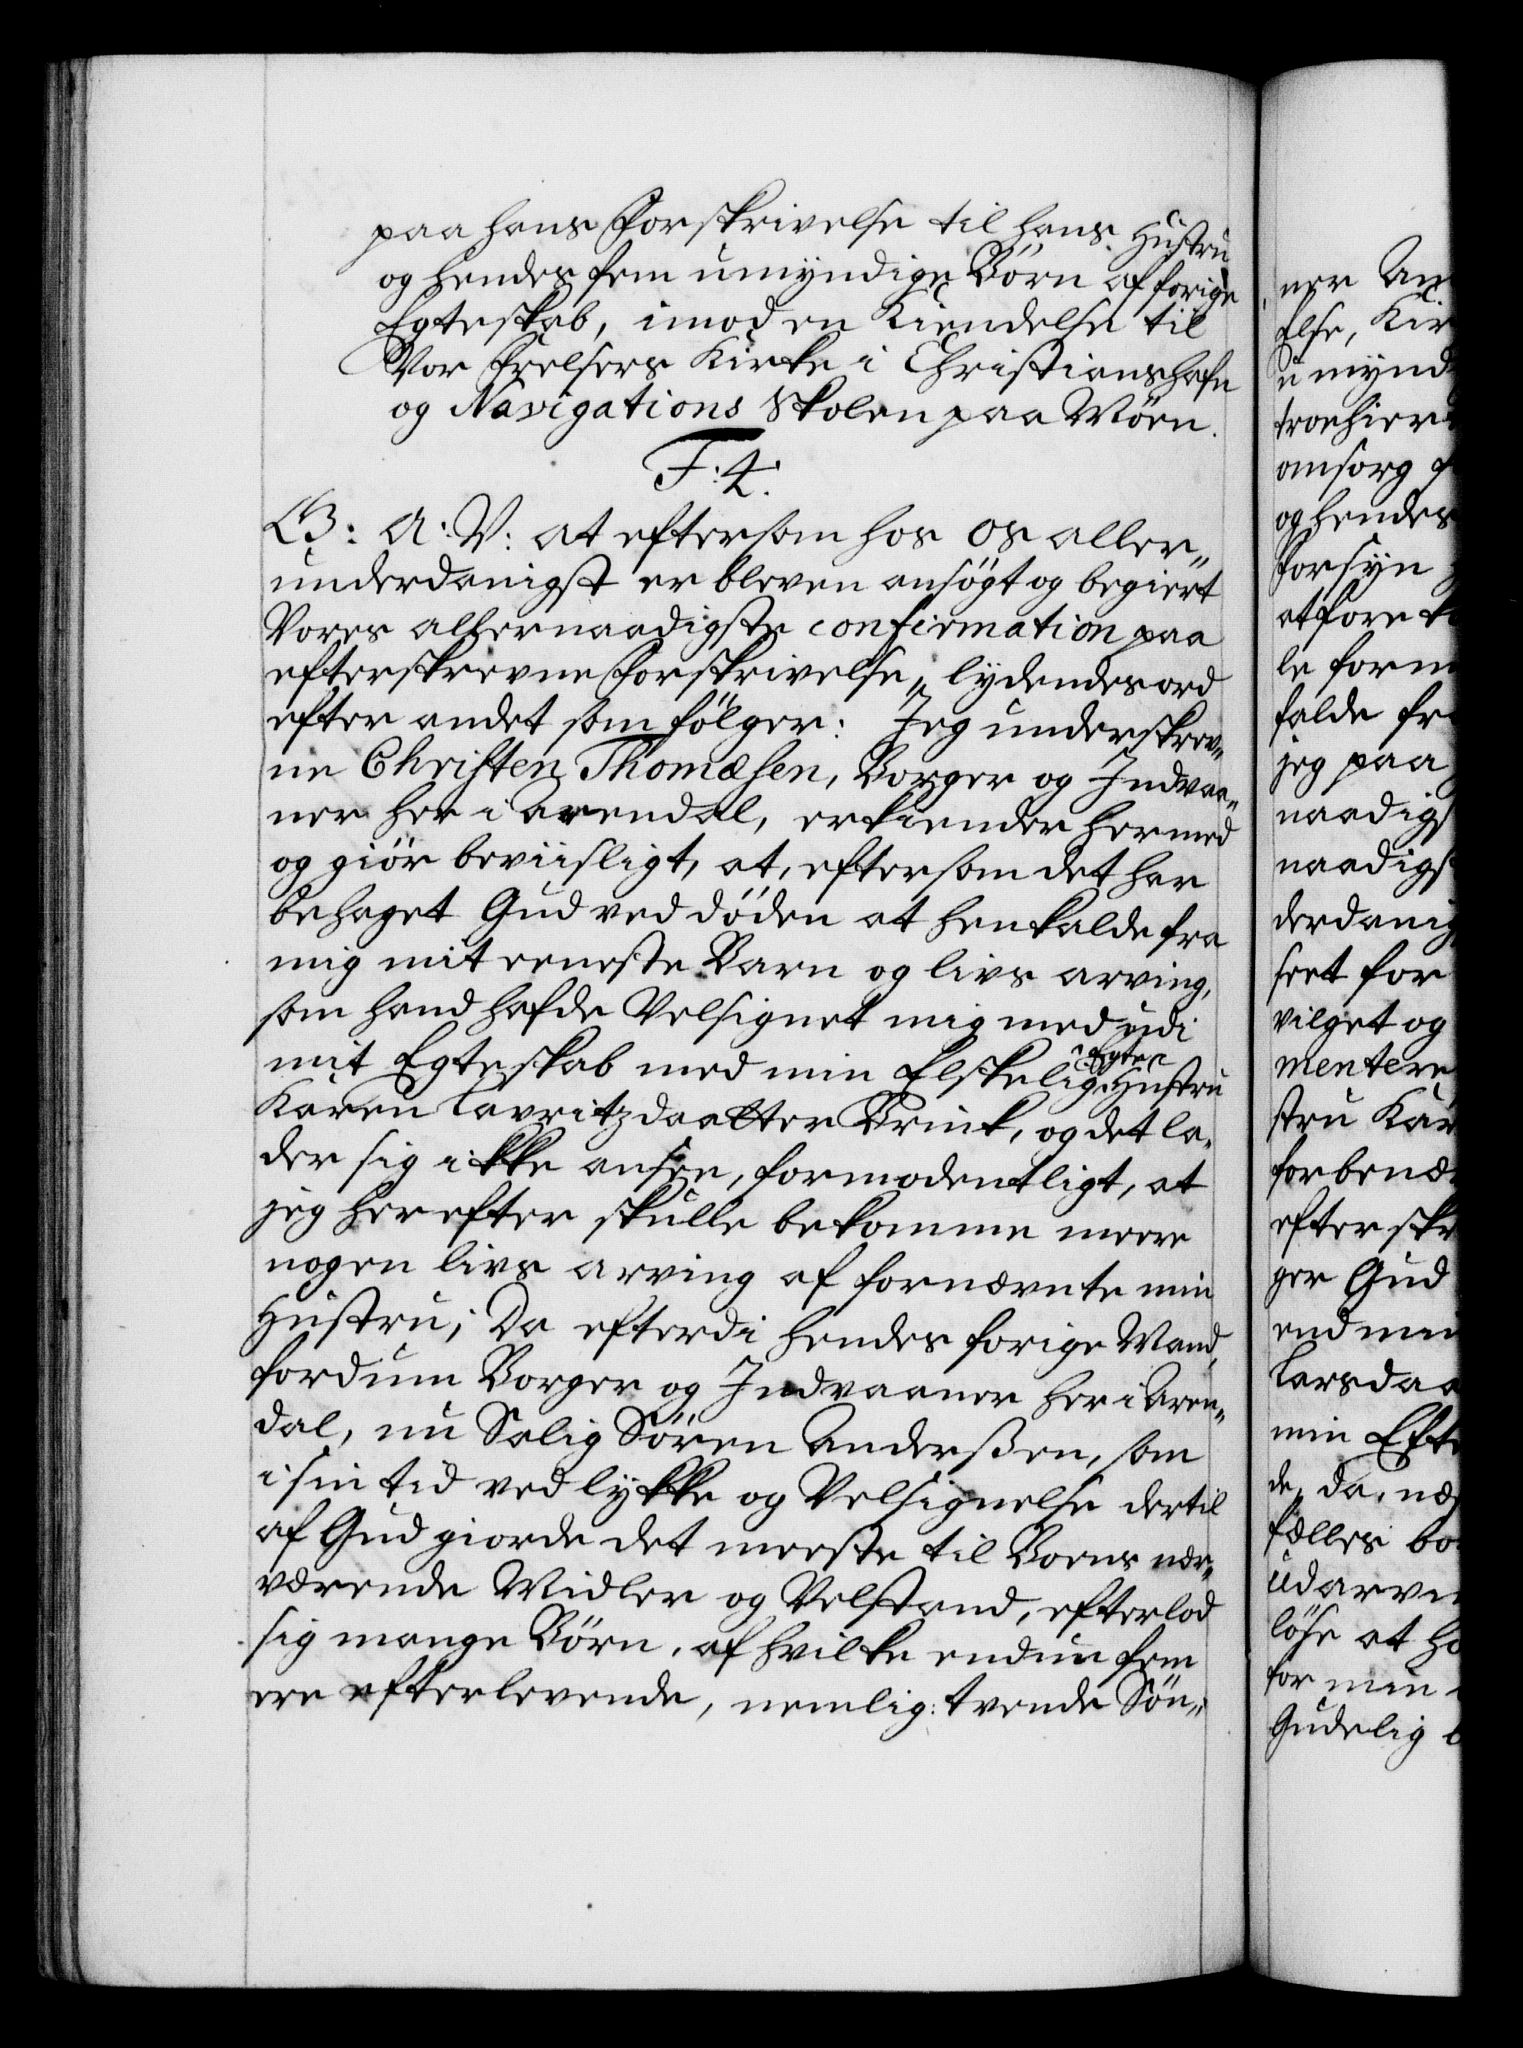 paa hans Forskrivelse til hans Hustru
og hendes fem umyndige Börn af forige
Egteskab, imod en Kiendelse til
Vor Frelsers Kirke i Christianshafn
og Navigations Skolen paa Möen.
F: 4.
G: A: V: at eftersom hos os aller„
underdanigst er bleven ansögt og begiert
Vores allernaadigste confirmation paa
efterskrevne Forskrivelse, lydendes ord
efter andet som fölger: Jeg underskrev„
ne Christen Thomæsen, Borger og Indvaa„
ner her i Arendal, erkiender hermed
og giör beviisligt, at, eftersom det har
behaget Gud ved döden at henkalde fra
mig mit eeneste Barn og livs arving,
som hand hafde Velsignet mig med udi
mit Egteskab med min Elskelig Egte Hustru
Karen Lavritzdaatter Brink, og det la„
der sig ikke ansee, formodentligt, at
jeg herefter skulle bekomme meere
nogen livs arving af fornævnte min
Hustru; Da efterdi hendes forige Mand,
fordum Borger og Indvaaner her i Aren„
dal, nu Salig Sören Anderßen, som
i sin tid ved lykke og Velsignelse dertil
af Gud giorde det meeste til Boens nær„
værende Midler og Velstand, efterlod
sig mange Börn, af hvilke endnu fem
ere efterlevende, nemlig: tvende Sön„
ner An
Else, Kir
umynd
troehier
omsorg f
og hendes
Forsyn
at fore
le form
falde fr
jeg paa
naadigs
naadigs
derdanig
seet for
vilget og
mentere
stru Kar
forbenæ
efterskr
ger Gud
end min
Larsdaa
min Efte
de, da, næ
fælles bo
udarvi
löse at ha
for min
Gudelig